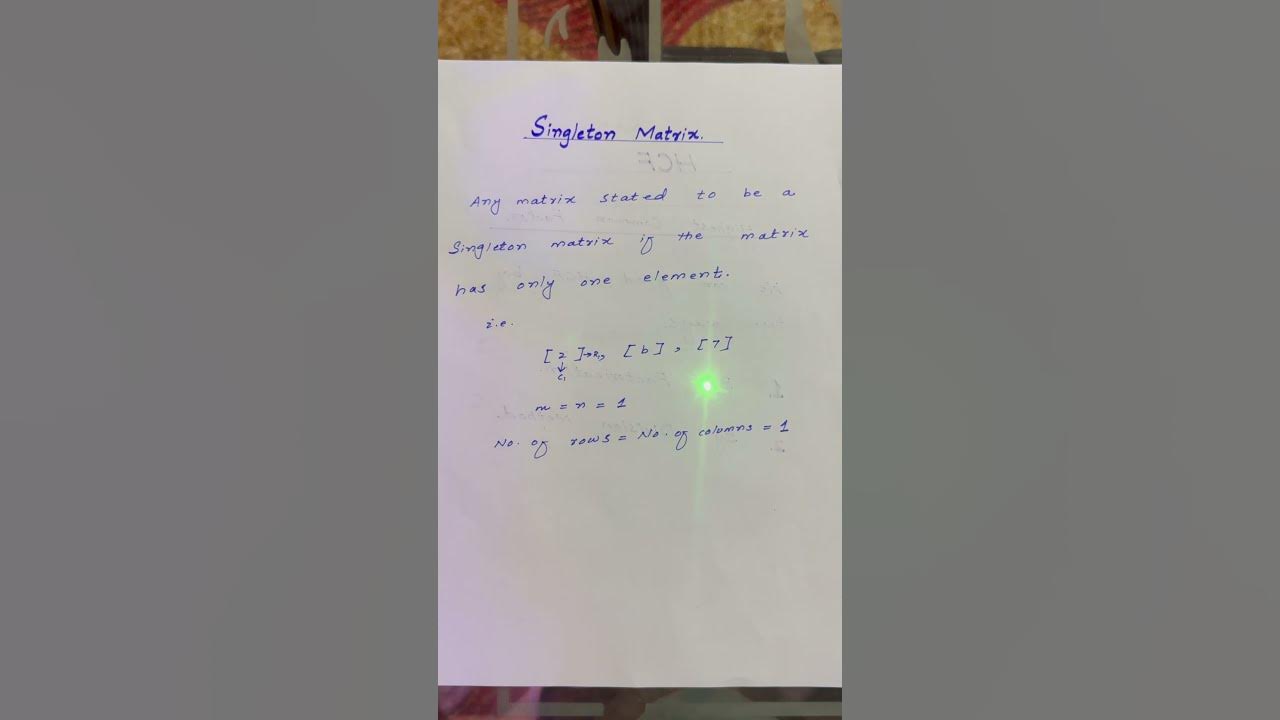 Singleton Matrix.
HCF
Any matrix stated to be a
Singleton matrix if the matrix
has only one element.
i.e.
[ 2 ]→R₁, [ b ] , [ 7 ]
↓
C₁
m = n = 1
No. of rows = No. of columns = 1